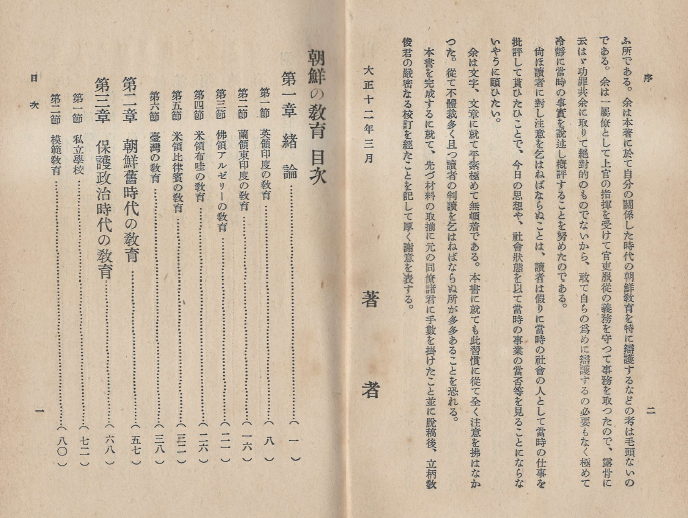 序
二
ふ所である。余は本書に於て自分の關係した時代の朝鮮敎育を特に辯護するなどの考は毛頭ないの
である。余は一屬僚として上官の指揮を受けて官吏服從の義務を守つて事務を取つたので、露骨に
云はゞ功罪共余に取りて絕對的のものでないから、敢て自らの爲めに辯護するの必要もなく極めて
冷靜に當時の事實を敍述し槪評することを努めたのである。
尙ほ讀者に對し注意を乞はねばならぬことは、讀者は假りに當時の社會の人として當時の仕事を
批評して貰ひたひことで、今日の思想や、社會狀態を以て當時の事業の當否等を見ることにならな
いやうに願ひたい。
余は文字、文章に就て平素極めて無頓着である。本書に就ても此習慣に從て全く注意を拂はなか
つた。從て不體裁多く且つ讀者の判讀を乞はねばならぬ所が多多あることを恐れる。
本書を完成するに就て、先づ材料の取捨に元の同僚諸君に手數を掛けたこと並に脫稿後、立柄敎
俊君の嚴密なる校訂を經たことを記して厚く謝意を表する。
大正十二年三月
著者
朝鮮の敎育 目次
第一章 緖論……(一)
第一節 英領印度の敎育……(八)
第二節 蘭領東印度の敎育……(一六)
第三節 佛領アルゼリーの敎育……(二二)
第四節 米領布哇の敎育……(二六)
第五節 米領比律賓の敎育……(三二)
第六節 臺灣の敎育……(三八)
第二章 朝鮮舊時代の敎育……(五七)
第三章 保護政治時代の敎育……(六八)
第一節 私立學校……(七二)
第二節 模範敎育……(八〇)
目次
一